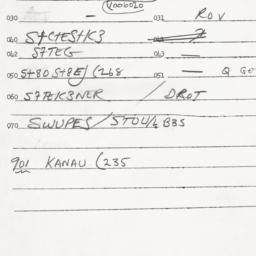 V000020
030 — 031 ROV
040 S+C+ES+K3
062 S7TEG 063 —
050 S+80 S+8E) (268 051 — Q GE
060 S7TEK3NER / DROT
070 SWUPES / STOU/6 B35
901 KANAU (235